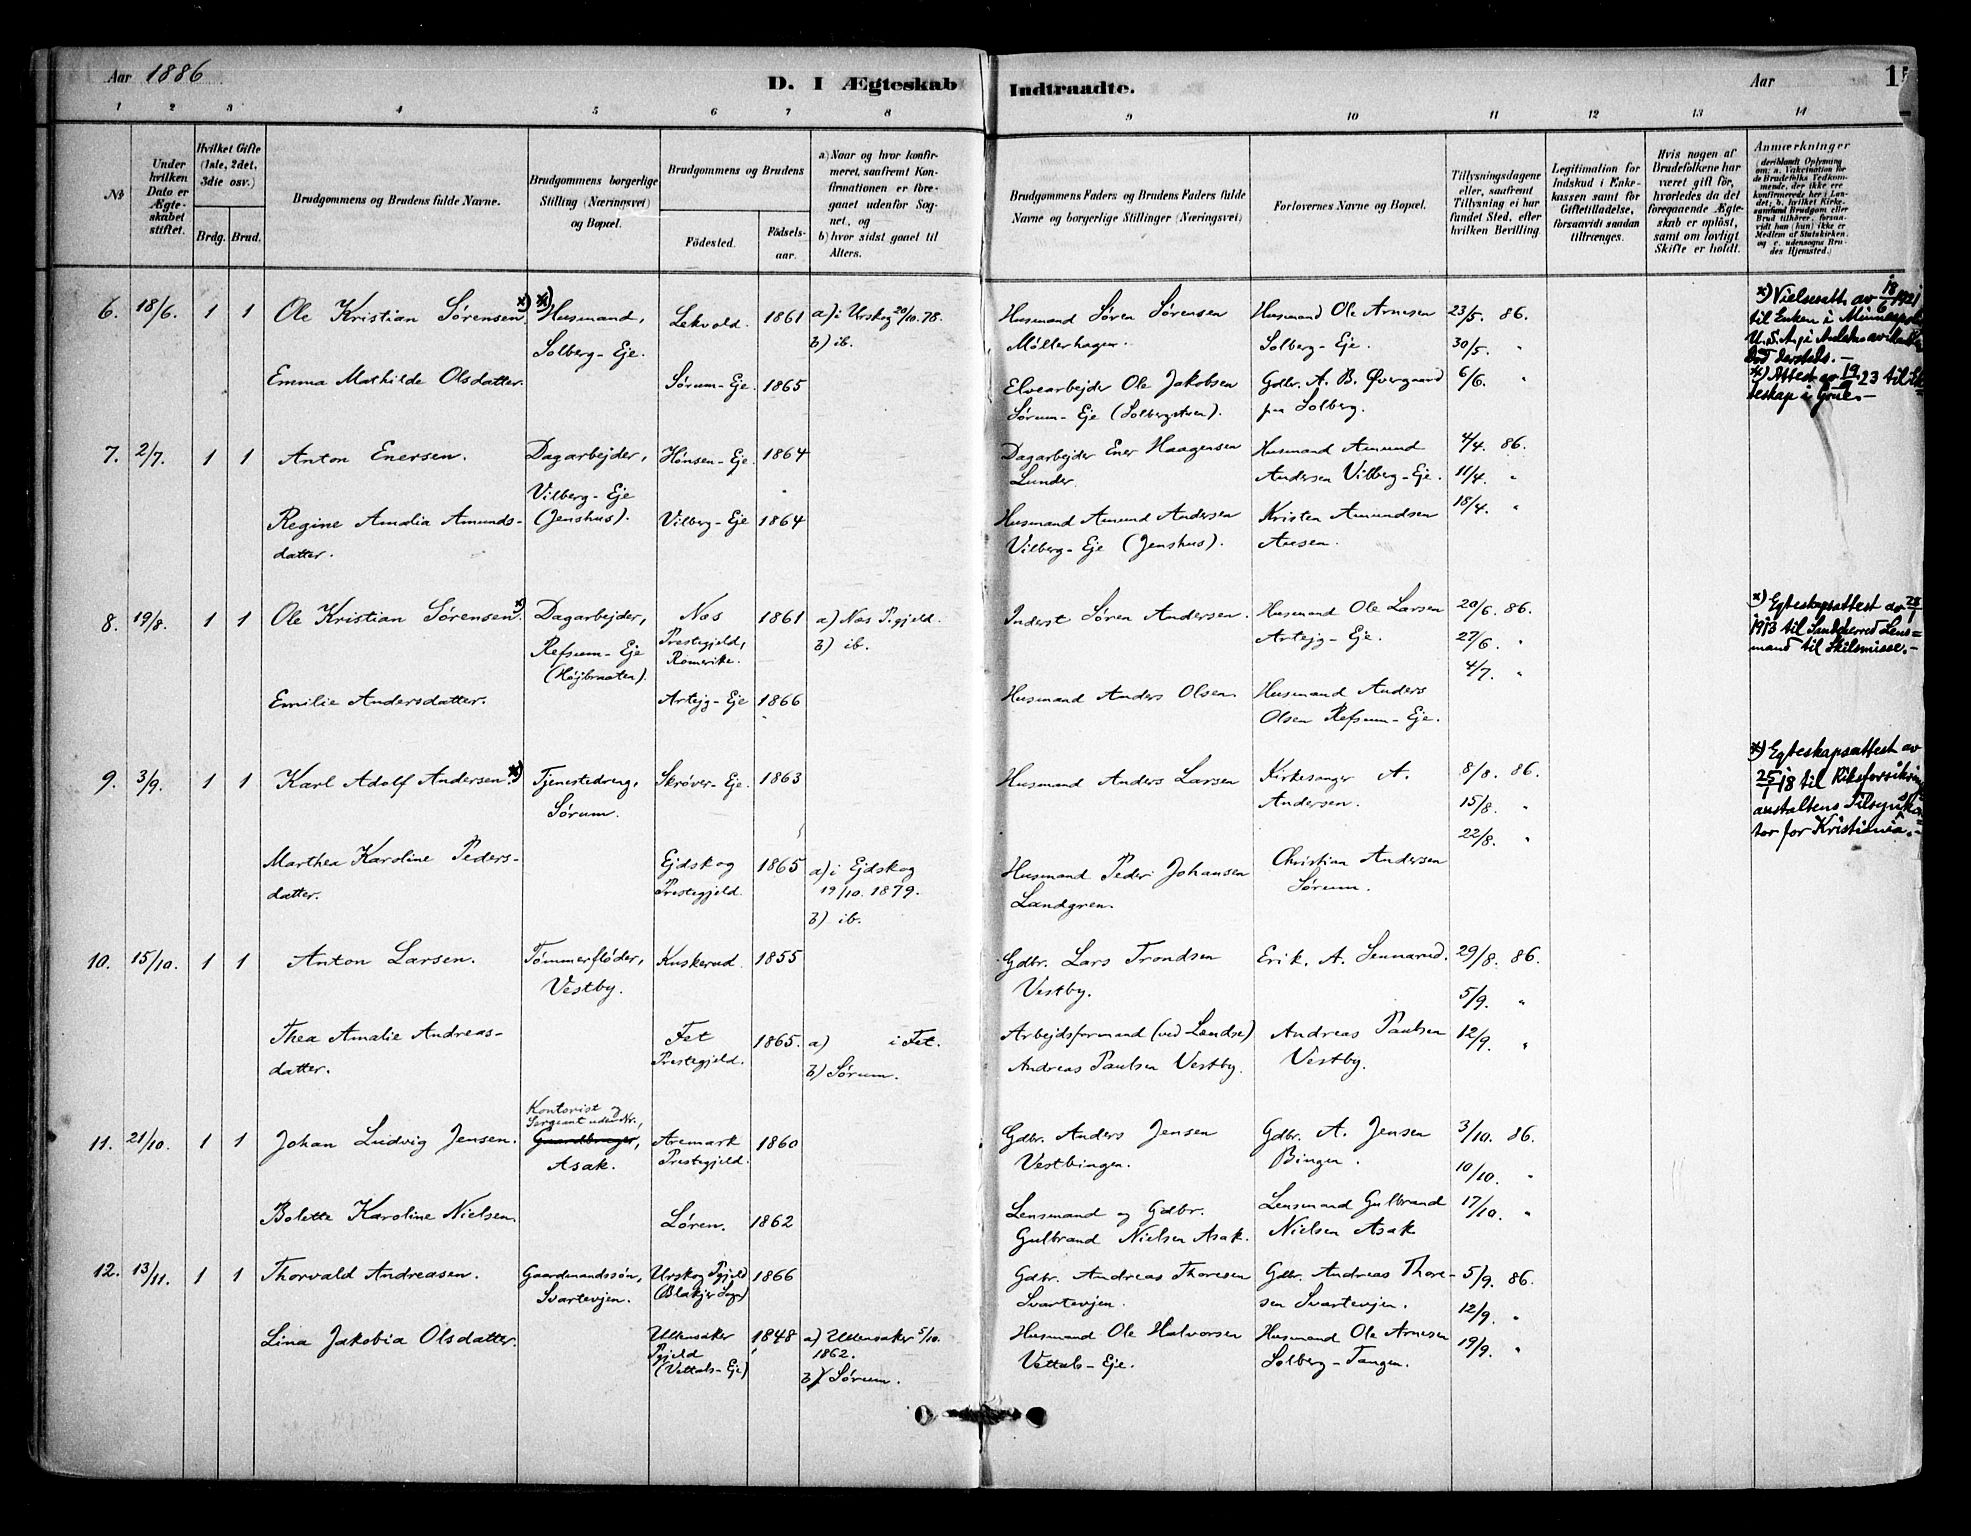 Aar 1886
D. I Ægteskab Indtraadte.
Aar
1 2 3 4 5 6 7 8 9 10 11 12 13 14
No.
Under hvilken Dato er Ægteskabet stiftet.
Hvilket Gifte (1ste, 2det, 3die osv.)
Brdg. Brud.
Brudgommens og Brudens fulde Navne.
Brudgommens borgerlige Stilling (Næringsvei) og Bopæl.
Brudgommens og Brudens
Fødested.
Fødselsaar.
a) Naar og hvor konfirmeret, saafremt Konfirmationen er foregaaet udenfor Sognet, og
b) hvor sidst gaaet til Alters.
Brudgommens Faders og Brudens Faders fulde Navne og borgerlige Stillinger (Næringsvei)
Forlovernes Navne og Bopæl.
Tillysningsdagene eller, saafremt Tillysning ei har fundet Sted, efter hvilken Bevilling
Legitimation for Indskud i Enkekassen samt for Giftetilladelse, forsaavidt saadan tiltrænges.
Hvis nogen af Brudefolkene har været gift før, hvorledes da det foregaaende Ægteskab er opløst, samt om lovligt Skifte er holdt.
Anmærkninger
(deriblandt Oplysning om: a. Vakcination for de Brudefolks Vedkommende, der ikke ere konfirmerede her i Landet; b. hvilket Kirkesamfund Brudgom eller Brud tilhører, forsaavidt han (hun) ikke er Medlem af Statskirken, og c. udensogns Brudes Hjemsted.)
6. 18/6. 1 1 Ole Kristian Sørensen x) x) Husmand, Lekvold. 1861 a) i Urskog 20/10.78.
Solberg-Eje. b) ib.
Emma Mathilde Olsdatter. Sørum-Eje. 1865
Husmand Søren Sørensen Husmand Ole Arnesen 23/5. 86.
Møllerhagen. Solberg-Eje. 30/5. "
Elvearbejder Ole Jakobsen Gdbr. A. B. Øvergaard 6/6. "
Sørum-Eje (Solbergstuen). paa Solberg.
x) Vielsesatt. av 18/6 1921
til Enken i
U.S.A. i
død dersteds.-
x) Attest av 19/9 23 til
teskap i Grue.-
7. 2/7. 1 1 Anton Enersen. Dagarbejder, Hønsen-Eje. 1864
Vilberg-Eje
Regine Amalia Amunds- (Jenshus). Vilberg-Eje 1864
datter.
Dagarbejder Ener Haagensen Husmand Amund 4/4. 86.
Lunder. Andersen Vilberg-Eje. 11/4. "
Husmand Amund Andersen Kristen Amundsen 18/4. "
Vilberg-Eje (Jenshus). Ausen.
8. 19/8. 1 1 Ole Kristian Sørensen x) Dagarbejder, Nes 1861 a) Nes Pgjeld.
Refsum-Eje Prestegjeld, b) ib.
(Højbraaten). Romerike.
Emilie Andersdatter. Artejg-Eje 1866
Inderst Søren Andersen. Husmand Ole Larsen 20/6. 86.
Artejg-Eje. 27/6. "
4/7. "
Husmand Anders Olsen. Husmand Anders
Olsen Refsum-Eje.
x) Egteskapsattest av 28/1
1913 til Lens=
mand til Skilsmisse.-
9. 3/9. 1 1 Karl Adolf Andersen x) Tjenestedreng, Skrøver-Eje. 1863
Sørum.
Marthea Karoline Peders- Ejdskog 1865 a) i Ejdskog
datter. Prestegjeld. 19/10.1879.
b) ib.
Husmand Anders Larsen Kirkesanger A. 8/8. 86.
Andersen. 15/8. "
22/8. "
Husmand Peder Johansen Christian Andersen
Landgren. Sørum.
x) Egteskapsattest av
25/1 18 til Riksforsikrings
anstaltens
tor for Kristiania.-
10. 15/10. 1 1 Anton Larsen. Tømmerfløder, Kuskerud. 1855
Vestby.
Thea Amalie Andreas- Fet 1865. a) i Fet.
datter. Prestegjeld. b) Sørum.
Gdbr. Lars Trondsen Erik. A. Lennarud. 29/8. 86.
Vestby. 5/9. "
Arbejdsformand (ved Lendse) Andreas Paulsen 12/9. "
Andreas Paulsen Vestby. Vestby.
11. 21/10. 1 1 Johan Ludvig Jensen. Kontorist og Sergeant uden Nr., Gaardbruger, Asak. Aremark Prestegjeld. 1860
Bolette Karoline Nielsen. Løren. 1862
Gdbr. Anders Jensen Gdbr. A. Jensen 3/10. 86.
Vestbingen. Bingen. 10/10. "
Lensmand og Gdbr. Lensmand Gulbrand 17/10. "
Gulbrand Nielsen Asak. Nielsen Asak
12. 13/11. 1 1 Thorvald Andreasen. Gaardmandssøn, Urskog Pgjeld 1866
Svartevjen. (Blakjer Sogn)
Lina Jakobia Olsdatter. Ullensaker 1848 a) Ullensaker 5/10.
Pgjeld 1862.
(Vettals-Eje) b) Sørum.
Gdbr. Andreas Thoresen Gdbr. Andreas Thore- 5/9. 86.
Svartevjen. sen Svartevjen. 12/9. "
Husmand Ole Halvorsen Husmand Ole Arnesen 19/9. "
Vettals-Eje. Solberg-Tangen.